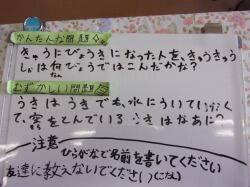 かんたんな問題
きゅうにびょうきになった人を、きゅうきゅう
しゃは何びょうではこんだかな?
なん
むずかしい問題
うきはうきでも、水にういていなく
て、窓をとんでいるうきはなあに?
注意
ひらがなで名前を書いてください
友達に教えないでください